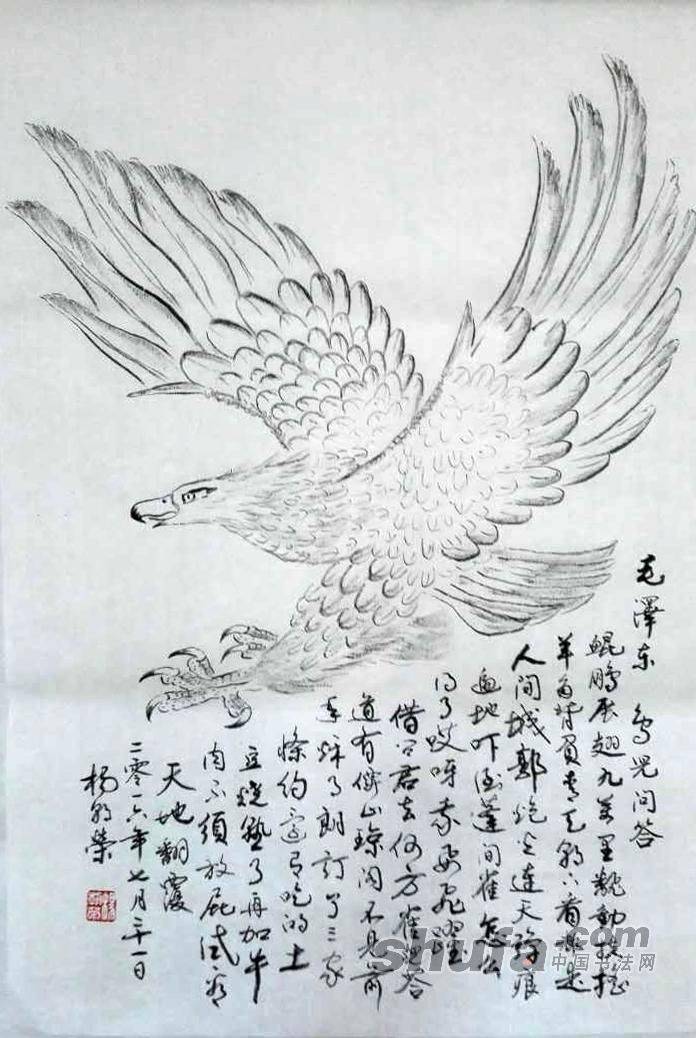 毛澤东 鸟儿问答
鲲鹏展翅九万里翻动扶摇
羊角背負青天朝下看都是
人间城郭炮火連天弹痕
遍地吓倒蓬间雀怎么
得了哎呀我要飞躍
借问君去何方雀兒答
道有僊山瓊阁不见前
年秌月朗訂了三家
條约还有吃的土
豆燒熟了再加牛
肉不须放屁试看
天地翻覆
二零一六年七月二十一日
楊
榮
shufa.com
中国书法网